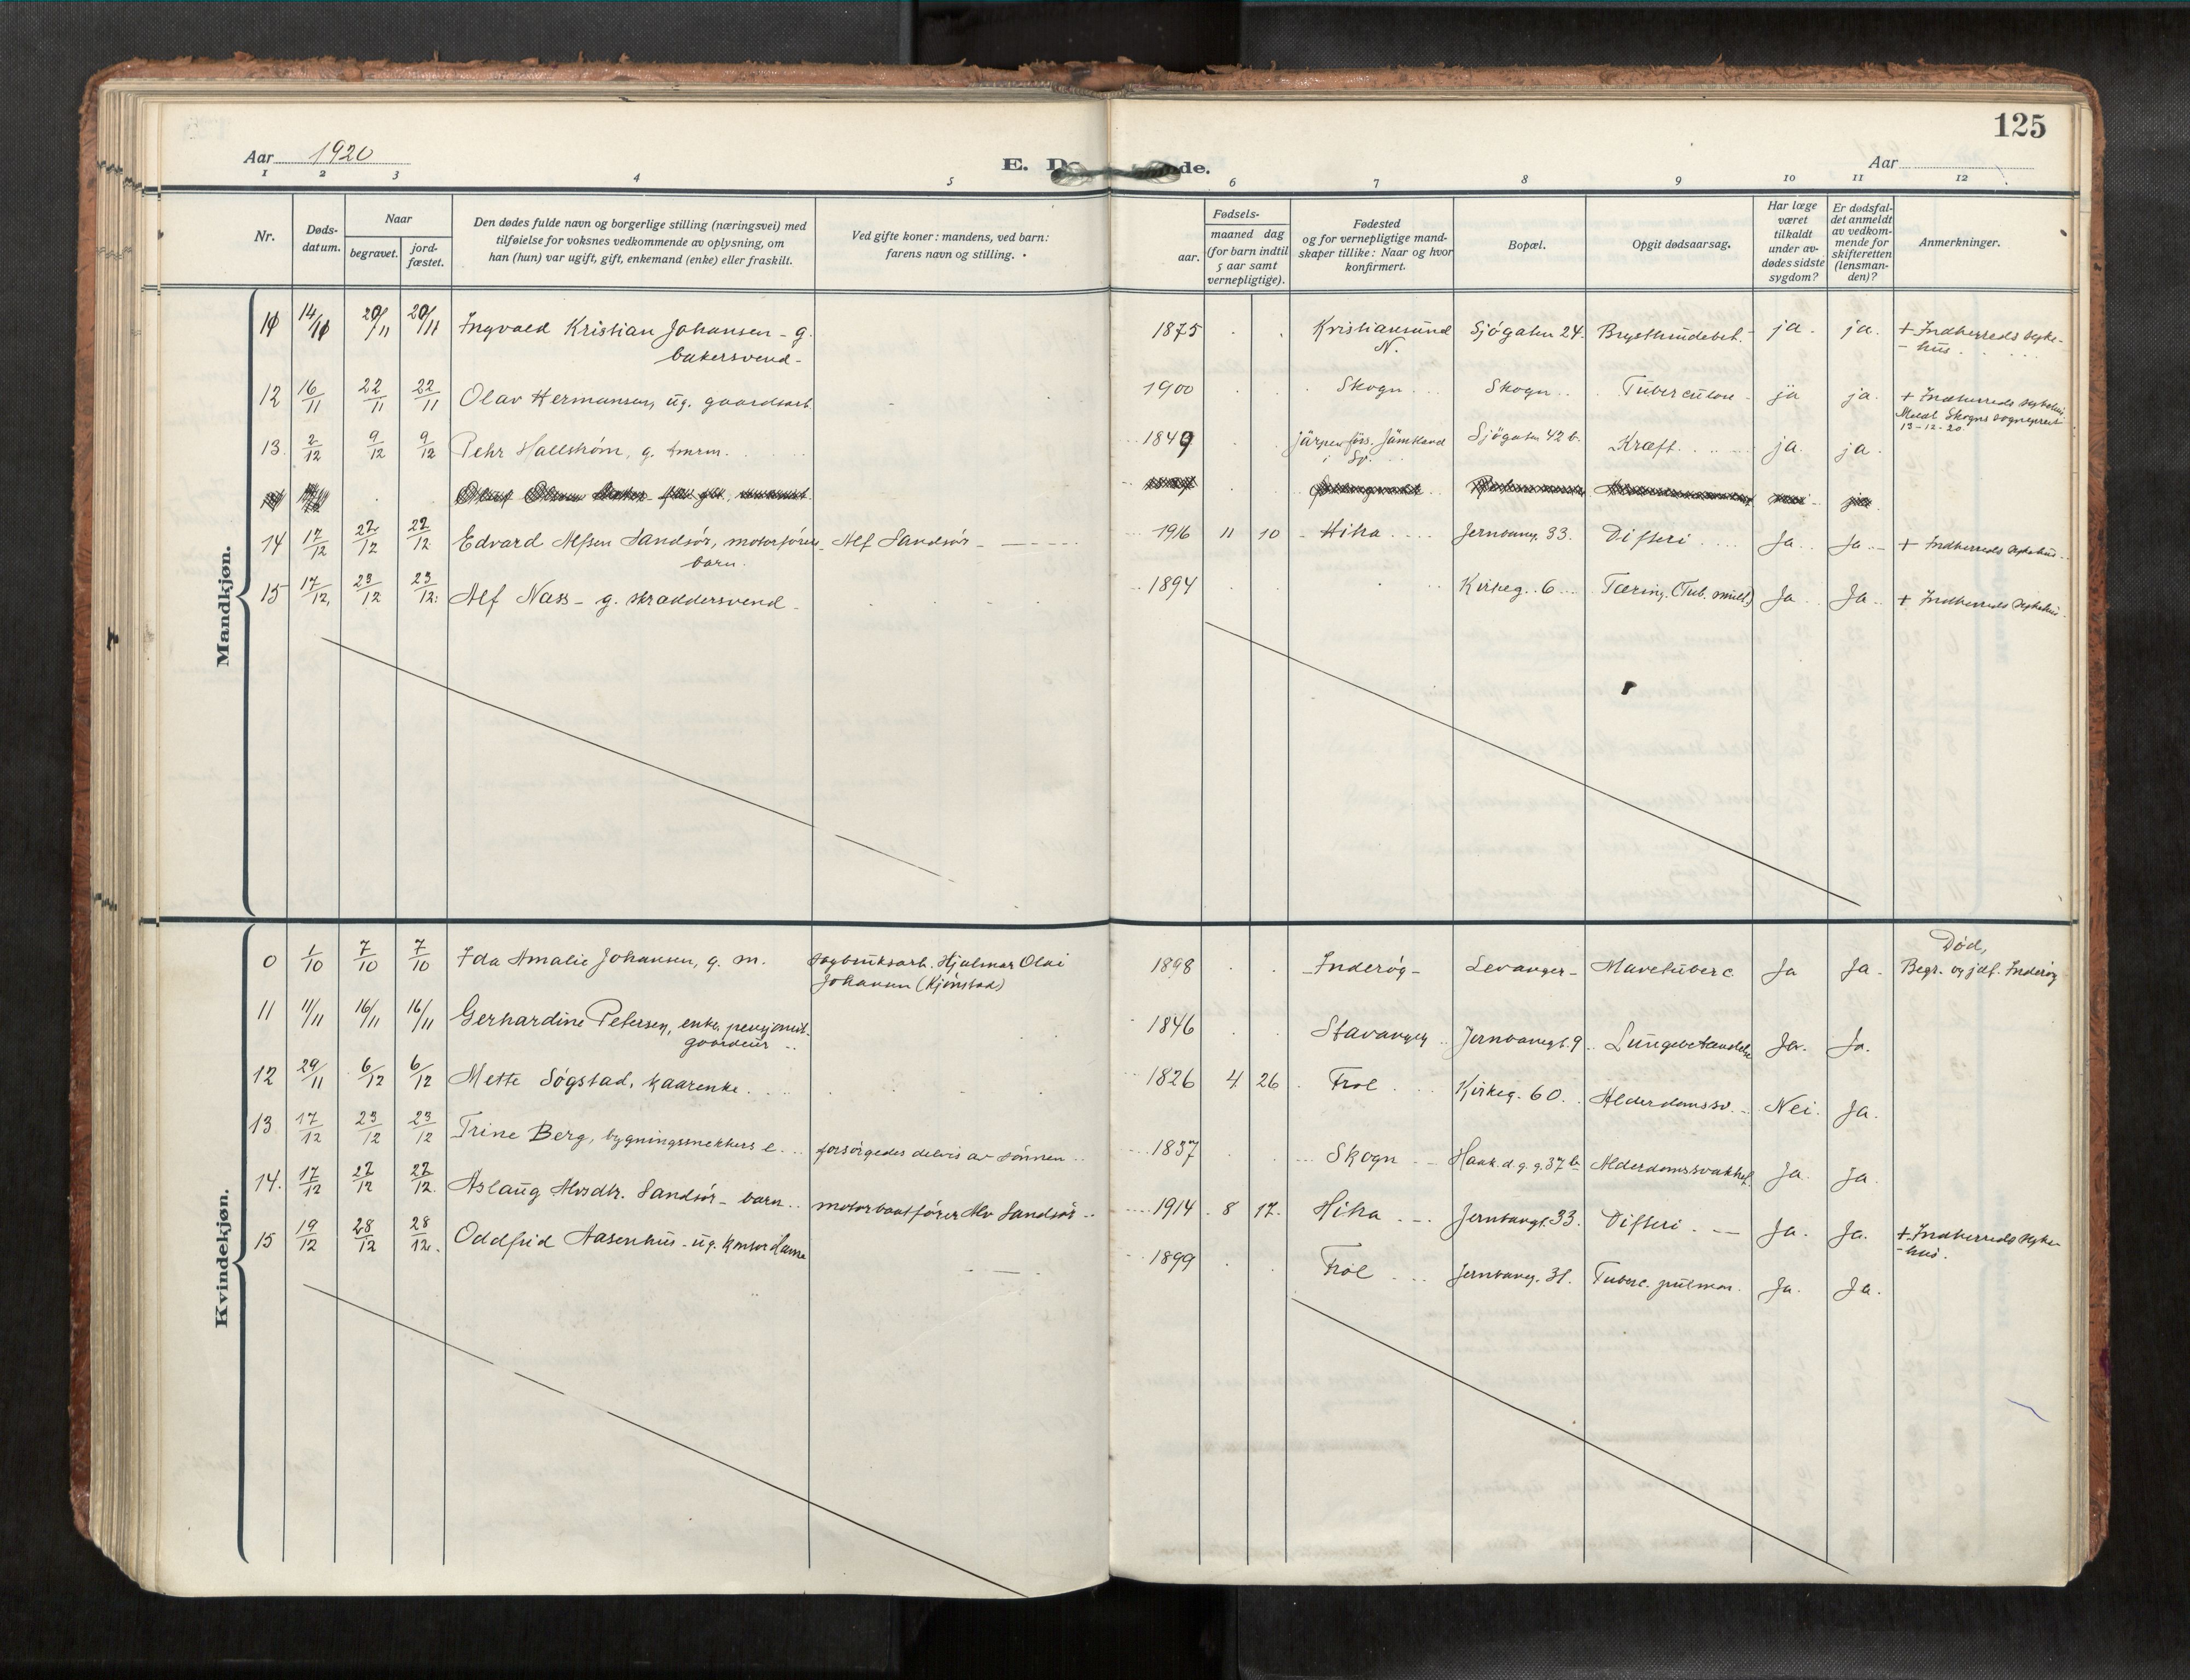 125
Aar 1920
E. D
de.
Aar
1 2 3 4 5 6 7 8 9 10 11 12
Nr.
Døds-
datum.
Naar
begravet.
jord-
fæstet.
Den dødes fulde navn og borgerlige stilling (næringsvei) med
tilføielse for voksnes vedkommende av oplysning, om
han (hun) var ugift, gift, enkemand (enke) eller fraskilt.
Ved gifte koner: mandens, ved barn:
farens navn og stilling.
Fødsels-
aar.
maaned dag
(for barn indtil
5 aar samt
vernepligtige).
Fødested
og for vernepligtige mand-
skaper tillike: Naar og hvor
konfirmert.
Bopæl.
Opgit dødsaarsag.
Har læge
været
tilkaldt
under av-
dødes sidste
sygdom?
Er dødsfal-
det anmeldt
av vedkom-
mende for
skifteretten
(lensman-
den)?
Anmerkninger.
Mandkjøn.
11 14/11 20/11 20/11 Ingvald Kristian Johansen - g. 1875 Kristiansund Sjøgaten 24. Brysthindebet. - ja. ja. + Indherreds syke-
bakersvend - N. - hus.
12 16/11 22/11 22/11 Olav Hermansen, ug. gaardsarb. 1900 Skogn Skogn Tuberculose - ja ja. + Indherreds sykehus,
Meddl. Skogns sogneprest
13-12-20.
13. 2/12 9/12 9/12 Pehr Hallstrøm, g. tmrm. 1849 Järpen förs. Jämtland Sjögaten 42 b. Kræft. ja. ja.
i Sv.
14 17/12 22/12 22/12 Edvard Alfsen Sandsør, motorfører- Alf Sandsör - 1916 11 10 - Hitra Jernbaneg. 33. Difteri Ja. Ja. - + Indherreds Sykehus.
barn.
15 17/12. 23/12 23/12. Alf Næss - g. skræddersvend - 1894 Kirkeg. 6 Tæring. (Tub. mult.) Ja Ja. + Indherreds Sykehus.
Kvindekjøn.
0 1/10 7/10 7/10 Ida Amalie Johansen, g. m. sagbruksarb. Hjalmar Olai 1898 Inderøy - Levanger - Mavetuberc Ja Ja. Død,
Johansen (Kjönstad) Begr. og jdf. Inderøy
11 11/11 16/11 16/11 Gerhardine Petersen, enke, pensjonist. 1846 Stavanger Jernbanegt. 9 Lungebetændelse Ja. Ja.
gaardeier
12 29/11 6/12 6/12 Mette Søgstad, kaarenke. 1826 4 26 Frol Kirkeg. 60. Alderdomssv. Nei. Ja.
13. 17/12 23/12 23/12 Trine Berg, bygningssnekkers e. forsörgedes delvis av sønnen 1837 Skogn Haak.d.g.g. 37 b Alderdomssvakhet Ja. Ja.
14. 17/12 22/12 22/12. Aslaug Alvsdtr. Sandsör - barn motorbaatfører Alv Sandsör 1914 8 17. Hitra Jernbanegt. 33. Difteri. Ja. Ja. + Indherreds syke-
- hus.
15 19/12 28/12 28/12. Oddfrid Aasenhus - ug. kontordame 1899 Frol Jernbaneg. 31. Tuberc. pulmon. Ja. Ja.